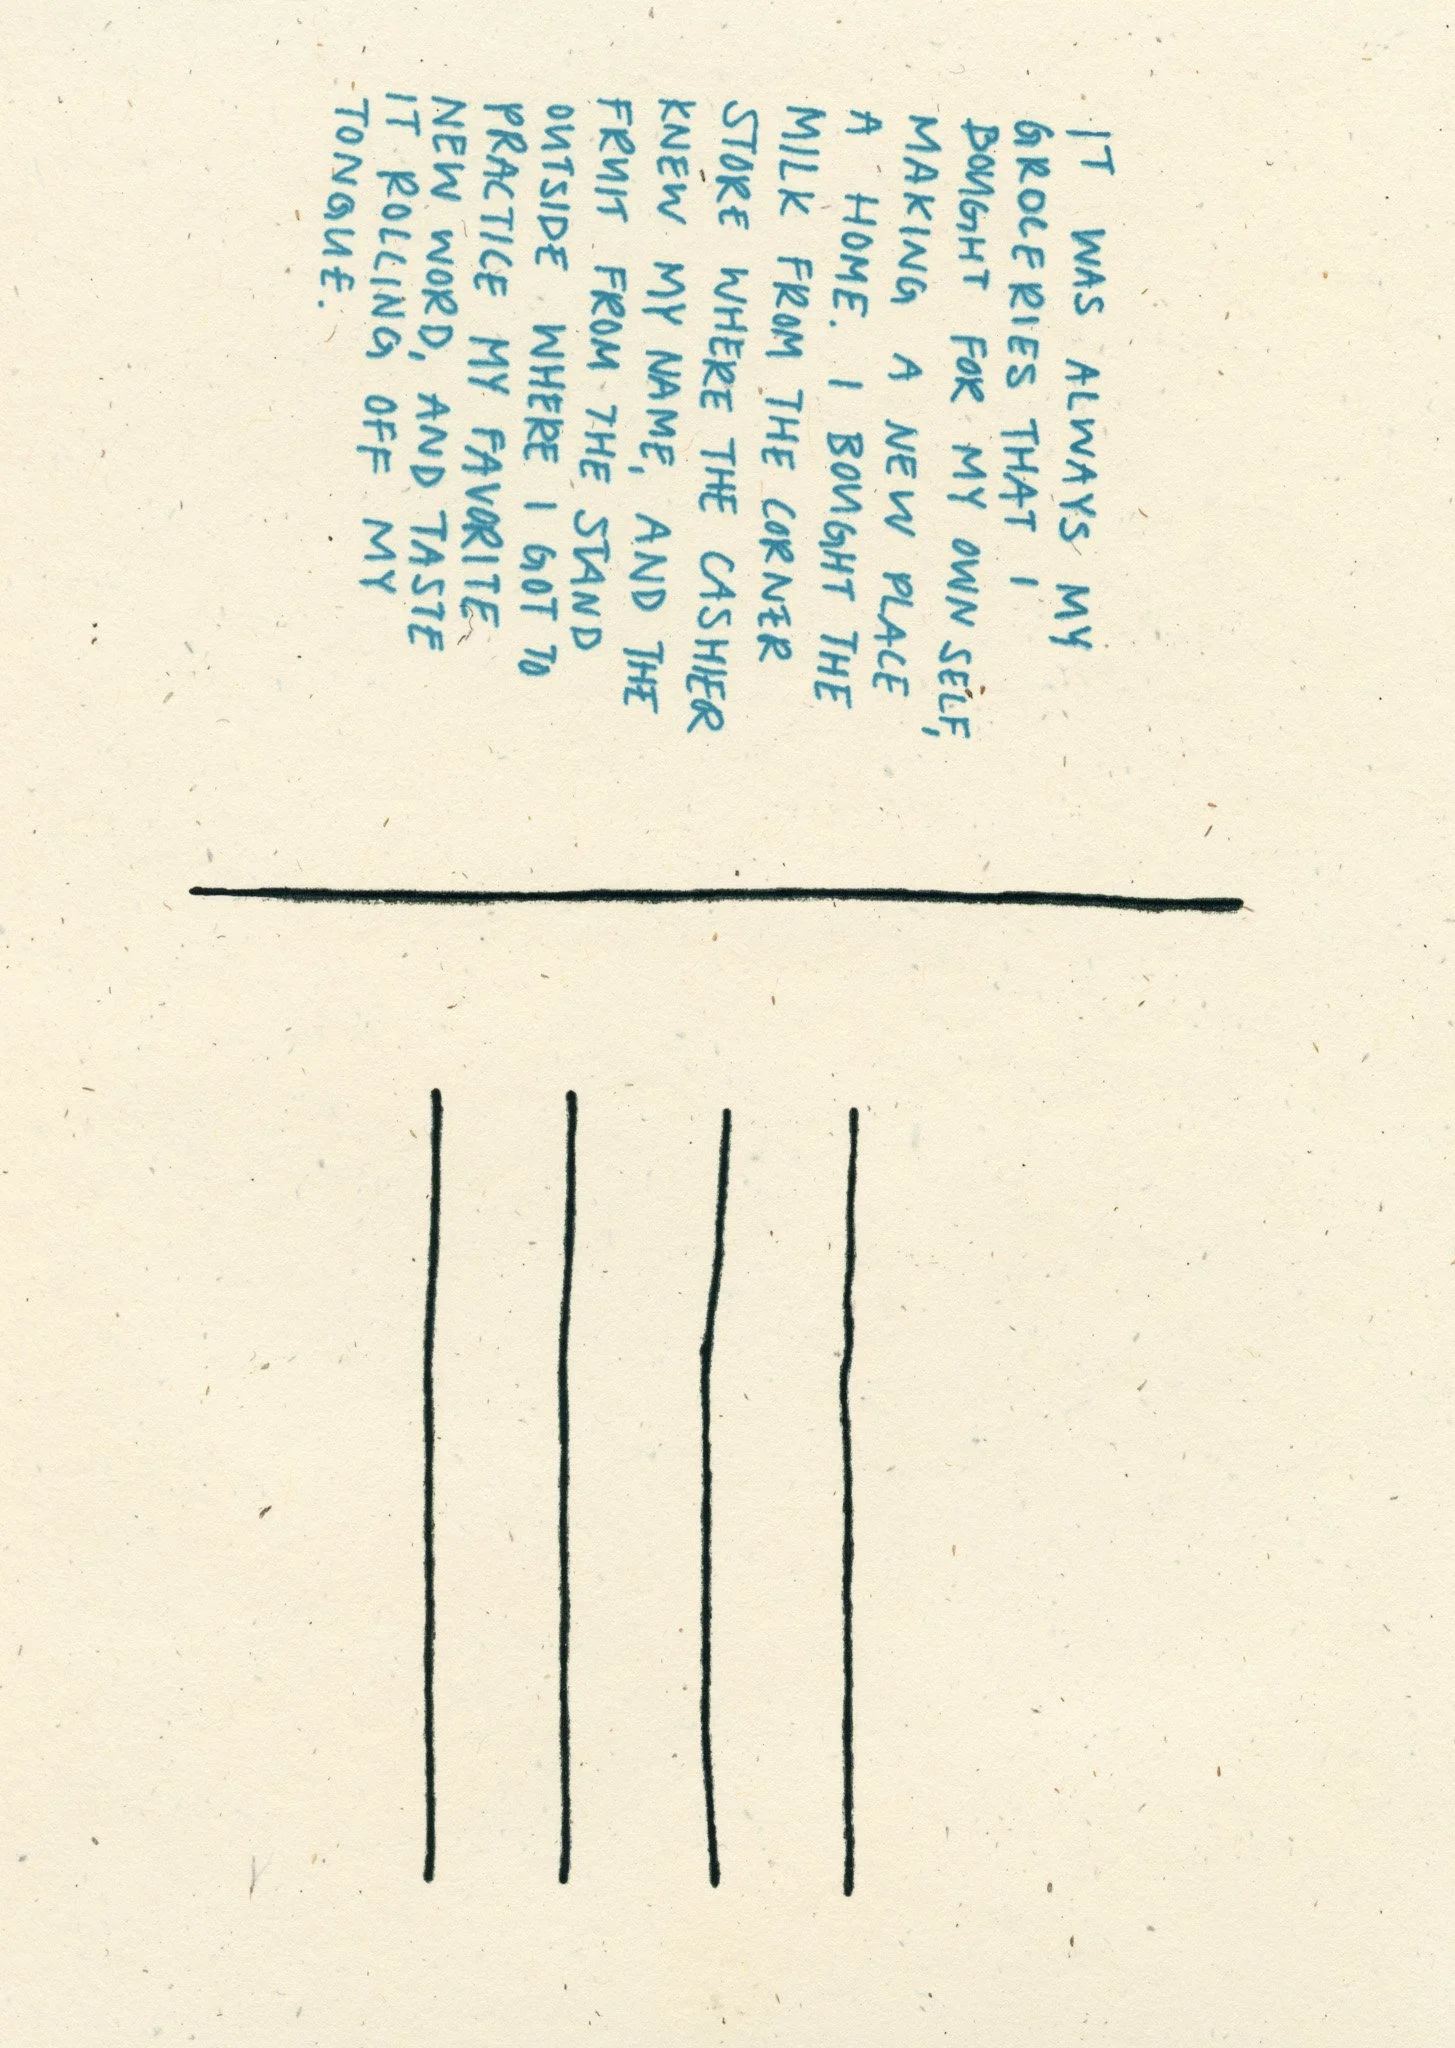 IT WAS ALWAYS MY
GROCERIES THAT I
BOUGHT FOR MY OWN SELF,
MAKING A NEW PLACE
A HOME. I BOUGHT THE
MILK FROM THE CORNER
STORE WHERE THE CASHIER
KNEW MY NAME, AND THE
FRUIT FROM THE STAND
OUTSIDE WHERE I GOT TO
PRACTICE MY FAVORITE
NEW WORD, AND TASTE
IT ROLLING OFF MY
TONGUE.